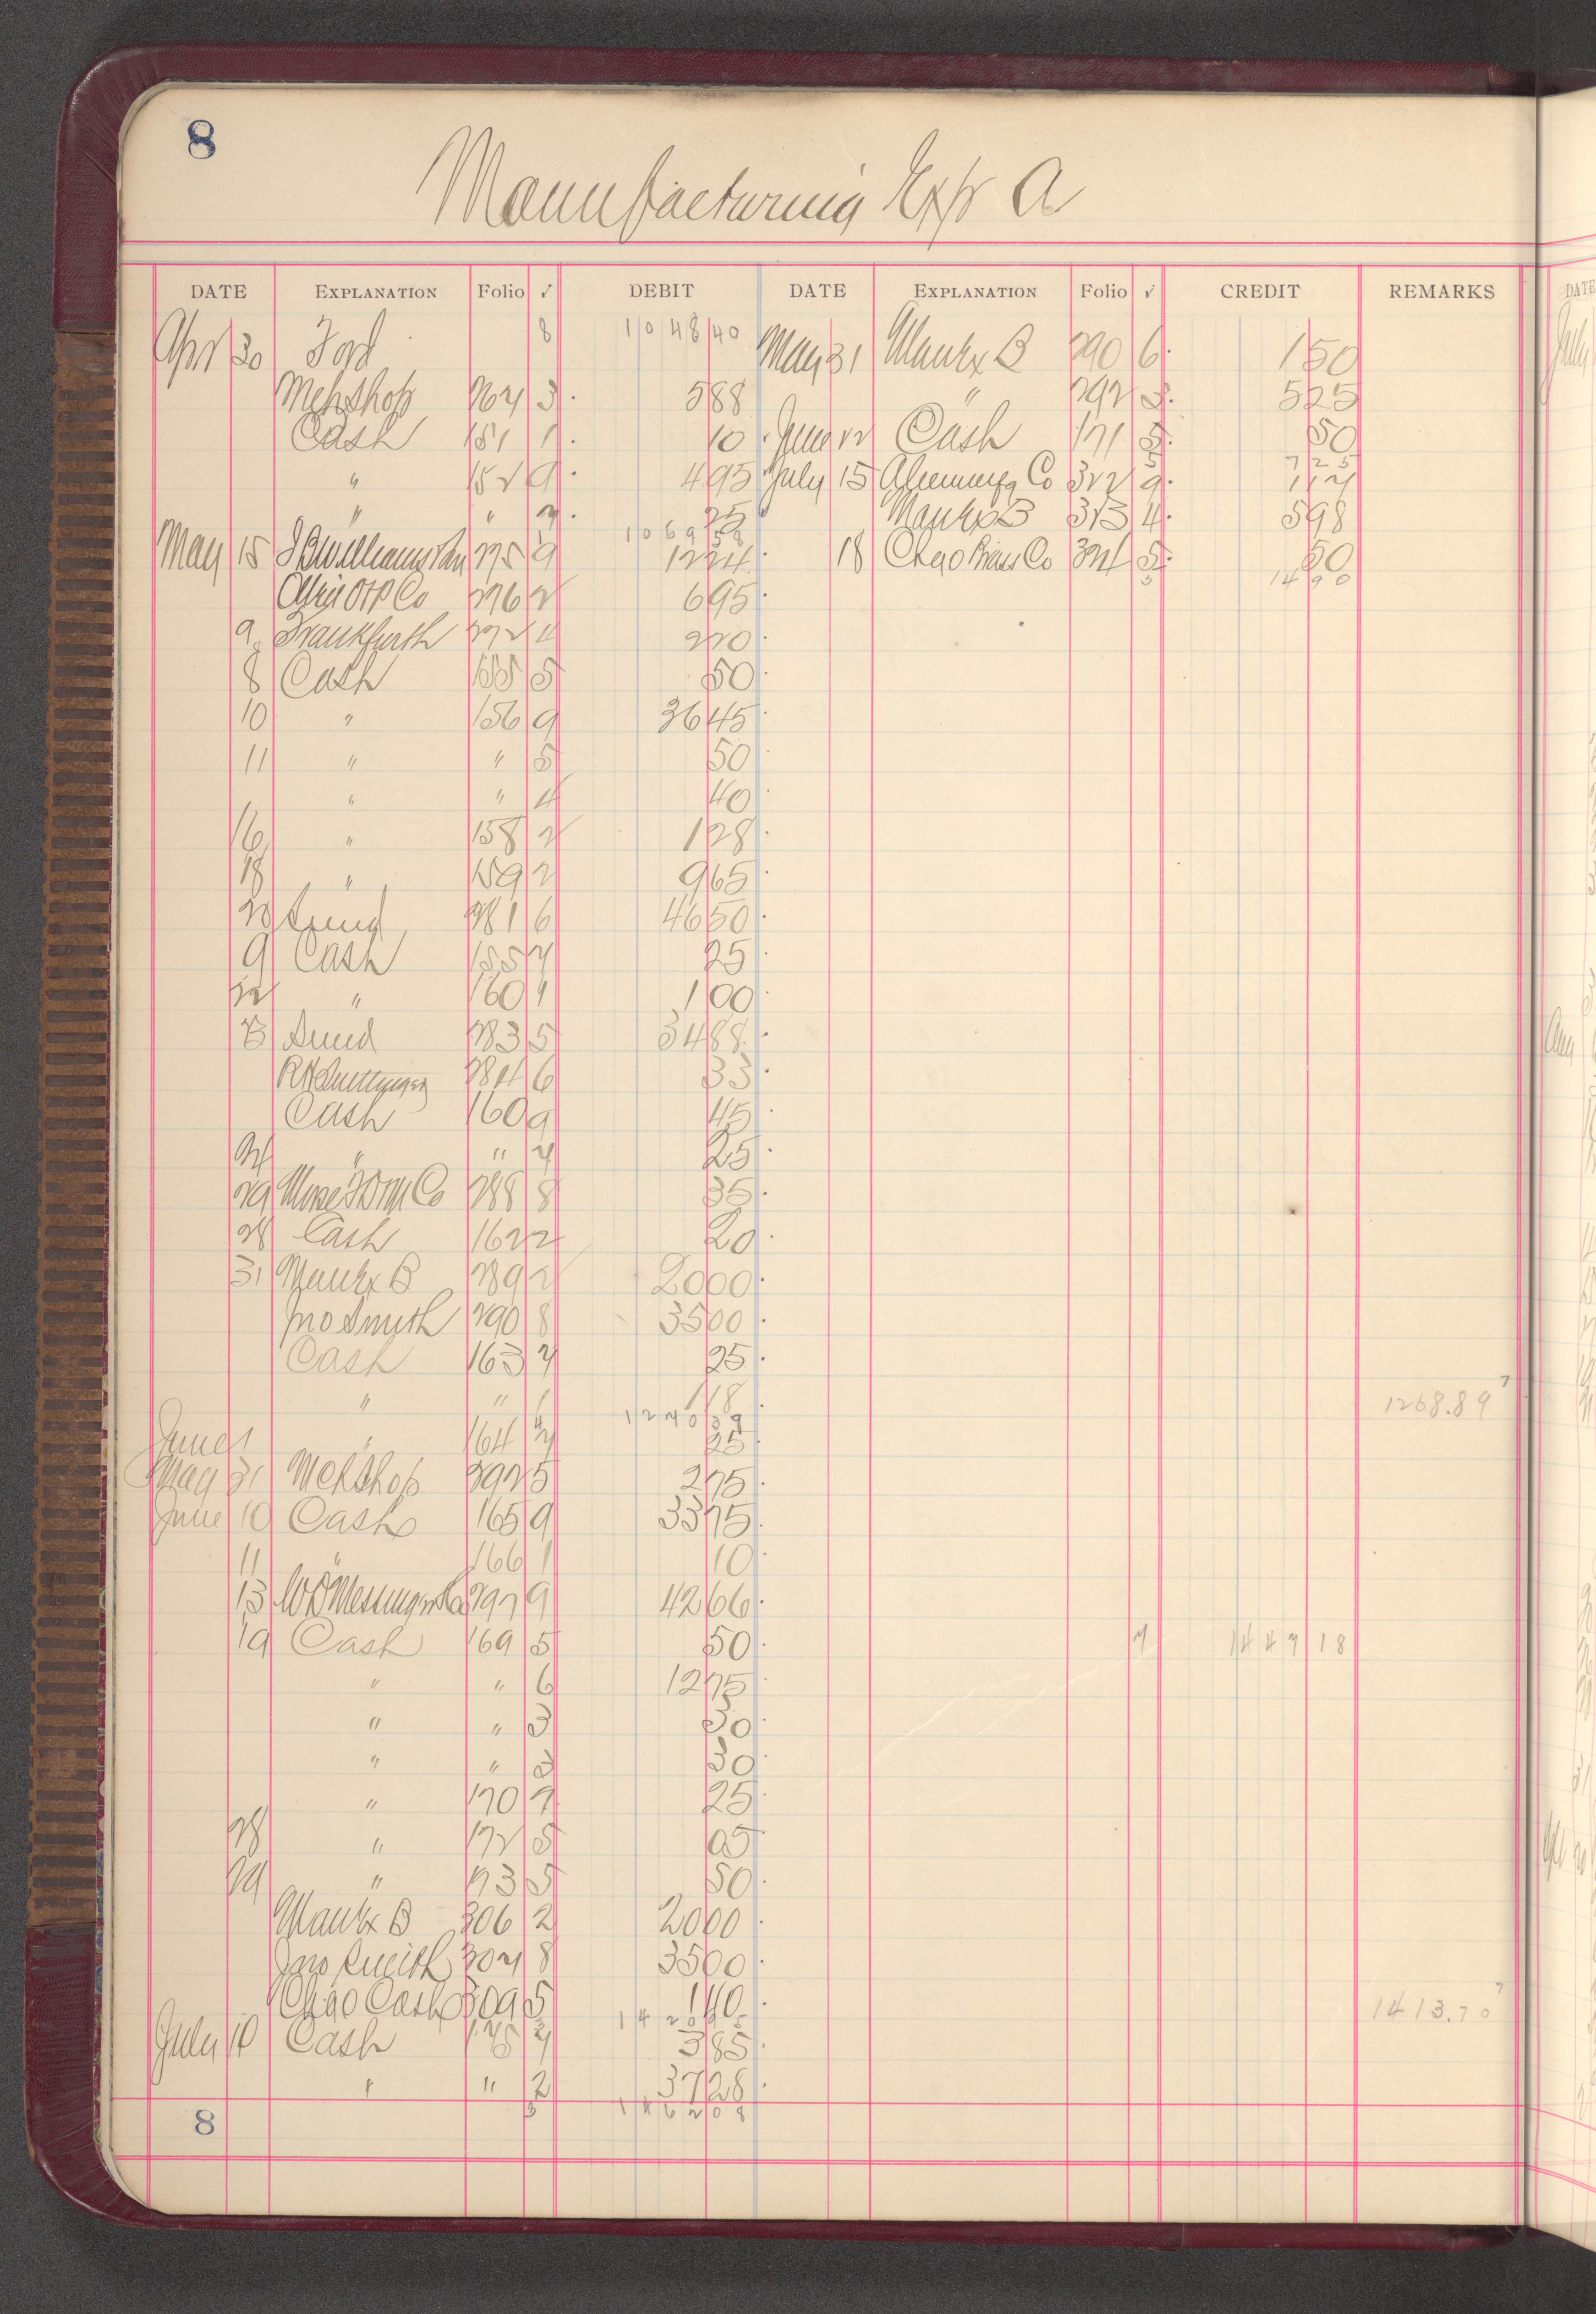 8
Manufacturing Exp A
DATE EXPLANATION Folio √ DEBIT DATE EXPLANATION Folio √ CREDIT REMARKS
Apr 30 Ford 8 1048 40 May 31 Manfg B 290 6 1 50
Mchshop 267 3 5 88 " 292 5 25
Cash 151 1 10 June 12 Cash 171 50
" 152 9 4 95 July 15 Co 322 9 7 25
" " 25 Manfg B 313 4 5 98
May 15 275 9 12 24 18 Chgo Brass Co 324 50
1069 14 90
Co 276 2 6 95
9 Frankfurth 272 4 2 20
8 Cash 155 5 50
10 " 156 9 36 45
11 " " 5 50
" " 4 40
16 " 158 2 1 28
18 " 159 2 9 65
20 281 6 46 50
9 Cash 155 7 25
22 " 160 1 1 00
23 283 5 34 88
284 6 33
Cash 160 9 45
24 " " 7 25
29 Co 288 8 35
28 Cash 162 2 20
31 Manfg B 289 2 20 00
Jno Smith 290 8 35 00
Cash 163 7 25
" " 1 18 1268.89
1240 39
June 1 " 164 7 25
May 31 Mchshop 292 5 2 75
June 10 Cash 165 9 33 75
11 " 166 1 10
13 297 9 42 66
19 Cash 169 5 50 7 1447 18
" " 6 12 75
" " 3 30
" " 3 30
" 170 7 25
28 " 172 5 05
29 " 173 5 50
Manfg B 306 2 20 00
Jno Smith 307 8 35 00
Chgo Cash 309 5 1 40 1413.70
July 10 Cash 7 3 85
" " 2 37 28
8 1462 09